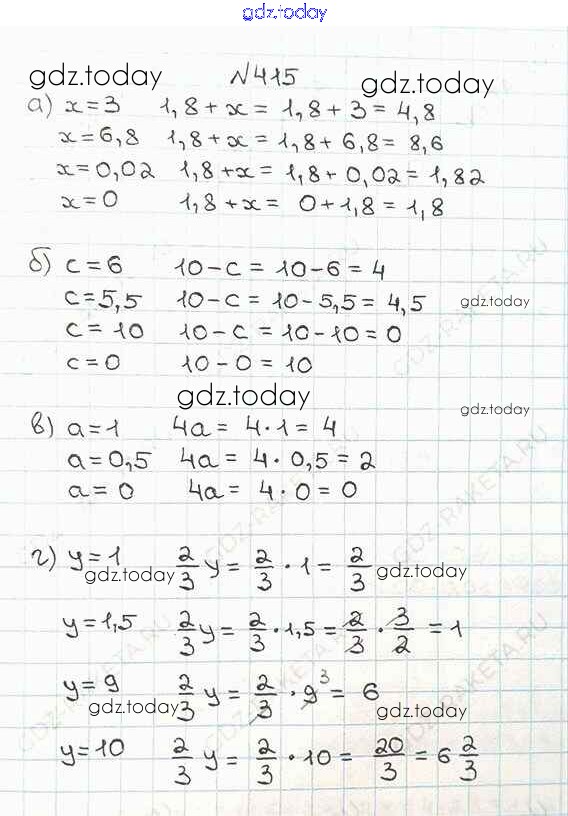 gdz.today
gdz.today №415 gdz.today
а) x=3 1,8+x= 1,8+3=4,8
x=6,8 1,8+x=1,8+6,8=8,6
x=0,02 1,8+x=1,8+0,02=1,82
x=0 1,8+x= 0+1,8=1,8
б) c=6 10-c=10-6=4
c=5,5 10-c=10-5,5=4,5 gdz.today
c=10 10-c=10-10=0
c=0 10-0=10
gdz.today gdz.today
в) a=1 4a=4·1=4
a=0,5 4a=4·0,5=2
a=0 4a=4·0=0
г) y=1 2/3 y=2/3·1=2/3
gdz.today gdz.today
y=1,5 2/3 y=2/3·1,5=2/3·3/2=1
y=9 2/3 y=2/3·9³=6
gdz.today gdz.today
y=10 2/3 y=2/3·10=20/3=6 2/3
GDZ-RAKETA.RU
GDZ-RAKETA.RU
GDZ-RAKETA.RU
GDZ-RAKETA.RU
GDZ-RAKETA.RU